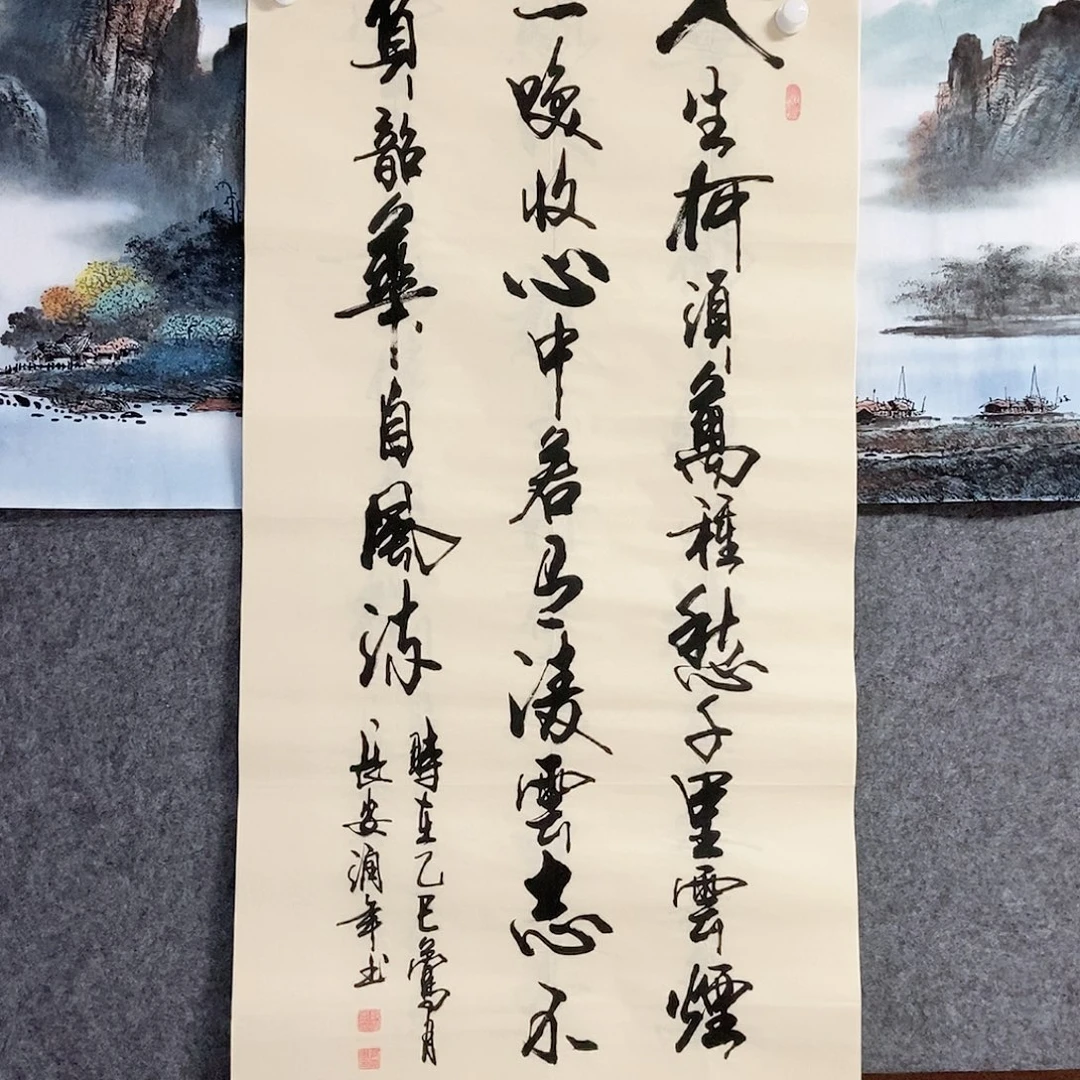 人生何須萬種愁千里雲煙
一瞬收心中若有凌雲志不
負韶華自風流
時在乙巳鶯月
長安潤年書